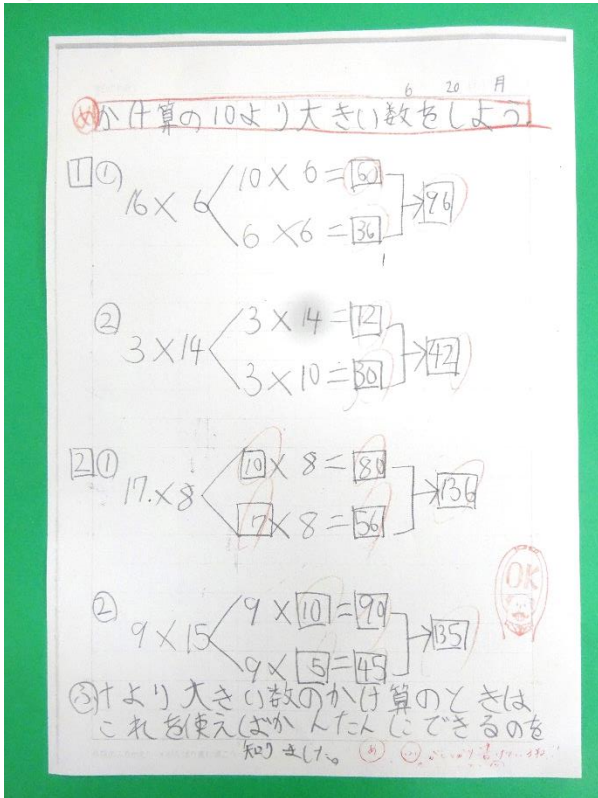 6 20 月
め かけ算の10より大きい数をしよう。
1 ① 16×6 10×6=60 96
6×6=36
② 3×14 3×14=12 42
3×10=30
2 ① 17.×8 10×8=80 136
7×8=56
② 9×15 9×10=90 135
9×5=45
OK
ふ 十より大きい数のかけ算のときは
これを使えばかんたんにできるのを
知りました。
め ふ